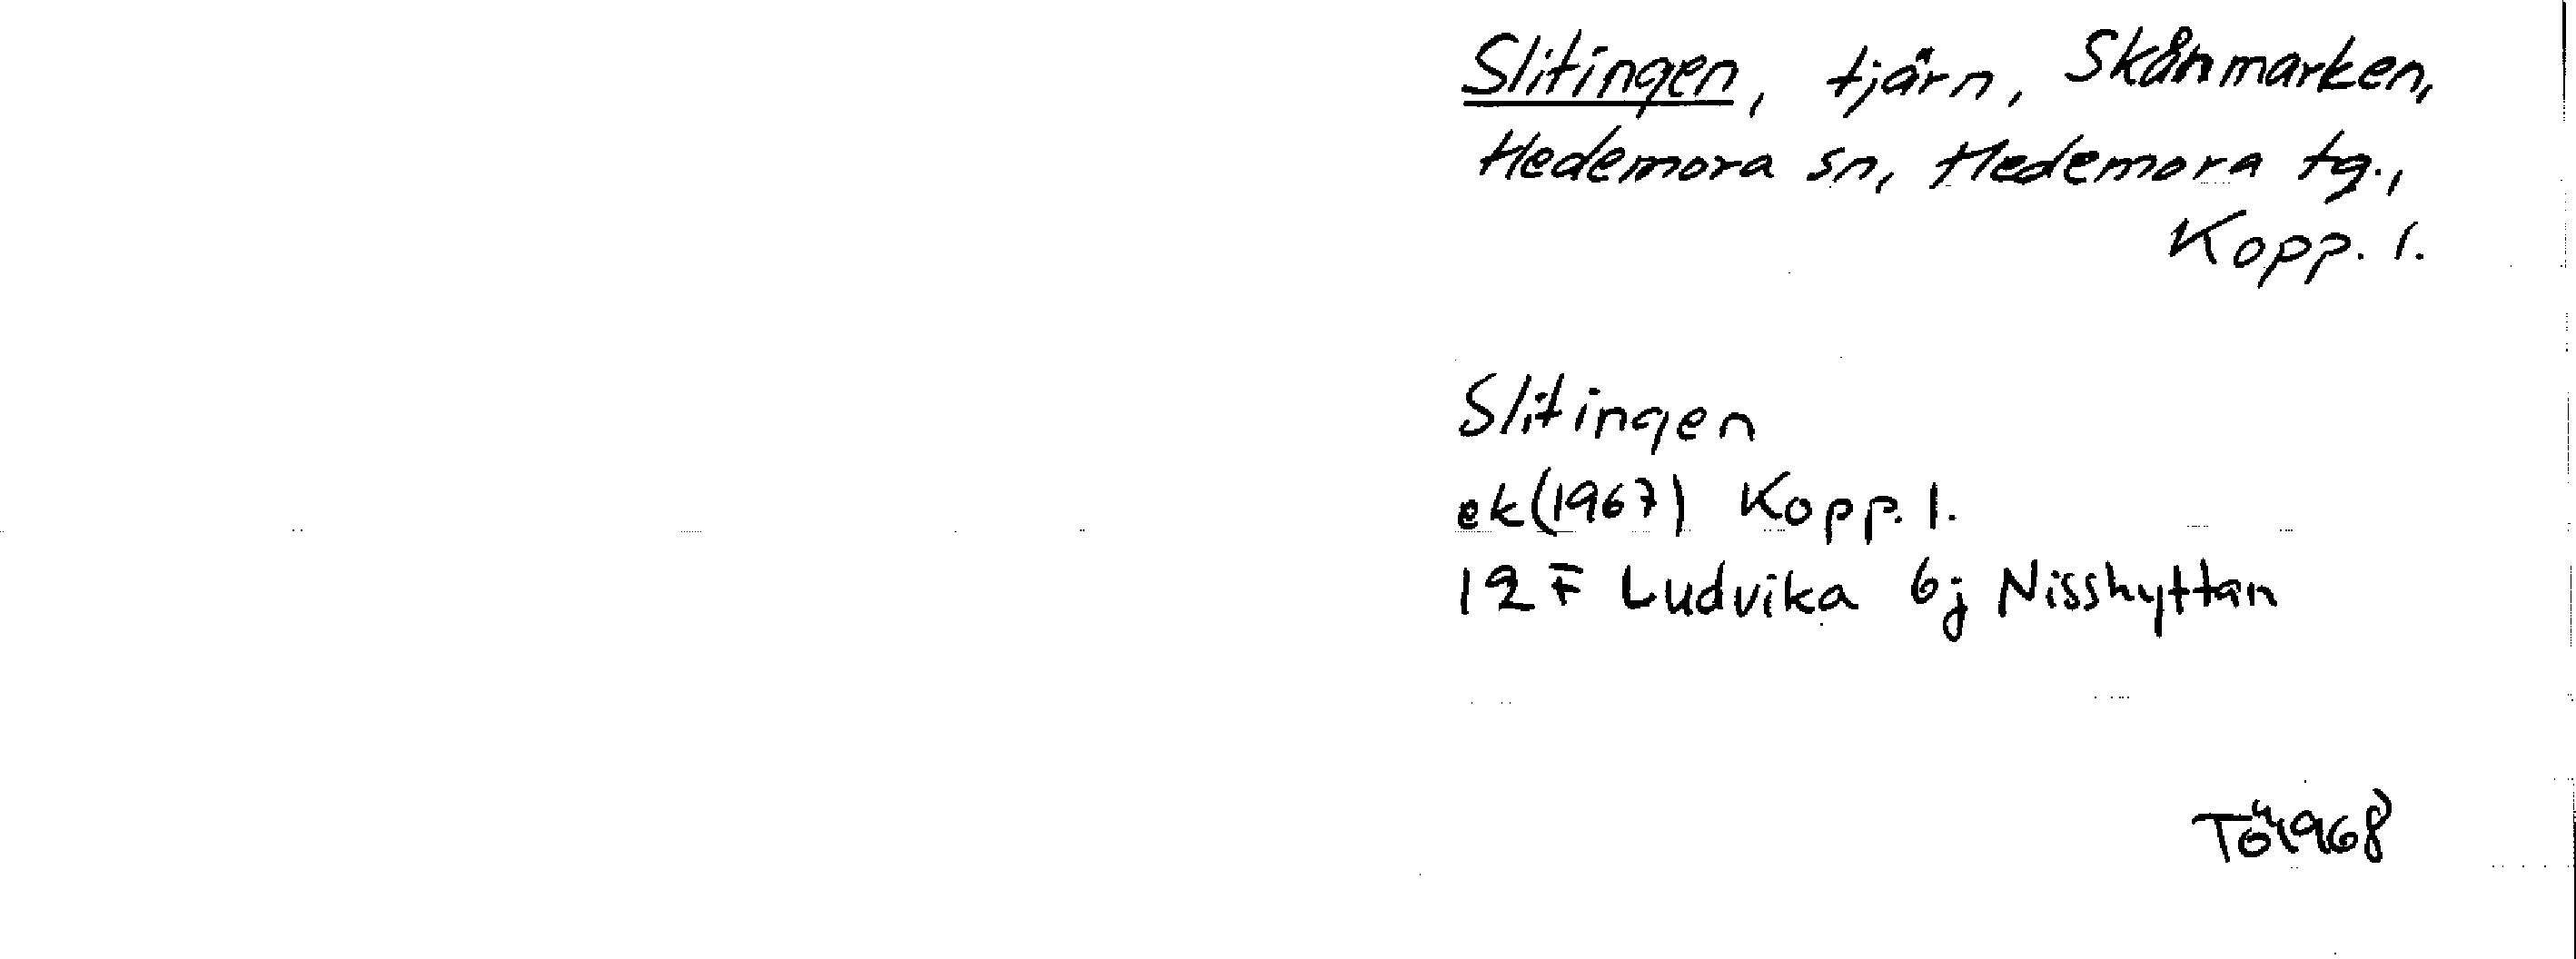 Slitingen, tjärn, Skånmarken,
Hedemora sn, Hedemora tg.,
Kopp. l.
Slitingen
ek (1967) Kopp. l.
12 F Ludvika 6j Nisshyttan
Tö 1968